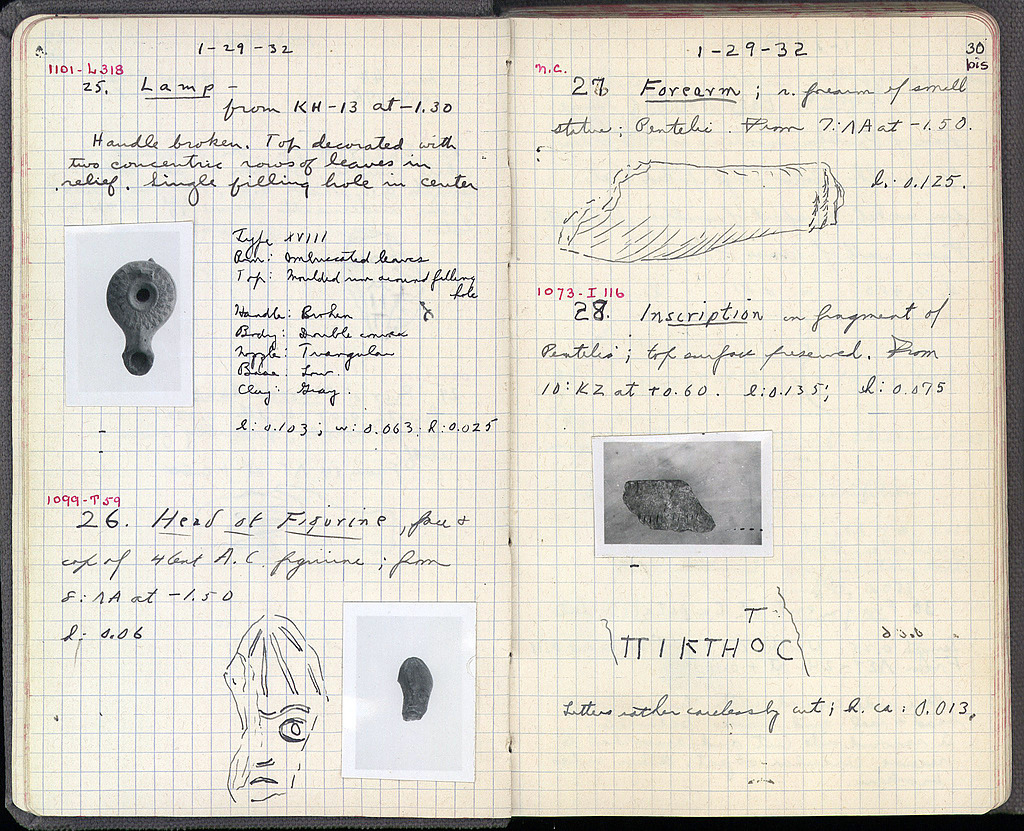 1-29-32
1101-L318
25. Lamp -
from KH-13 at -1.30
Handle broken. Top decorated with
two concentric rows of leaves in
relief. Single filling hole in center
Type XVIII
Rim: Imbricated leaves
Top: Moulded rim around filling
hole
Handle: Broken
Body: Double convex
Nozzle: Triangular
Base: Low.
Clay: Gray.
l: 0.103; w: 0.063; h: 0.025
1099-T59
26. Head of Figurine, face &
cap of 4 Cent A.C. figurine; from
8:ΛA at -1.50
l: 0.06
1-29-32
30
bis
n.c.
27 Forearm; r. forearm of small
statue; Pentelic. From 7:ΛA at -1.50.
l: 0.125.
1073-I 116
28. Inscription on fragment of
Pentelic; top surface preserved. From
10:KZ at +0.60. l: 0.135; h: 0.075
T
ΠIKTHOC
Letters rather carelessly cut; h. ca: 0.013.